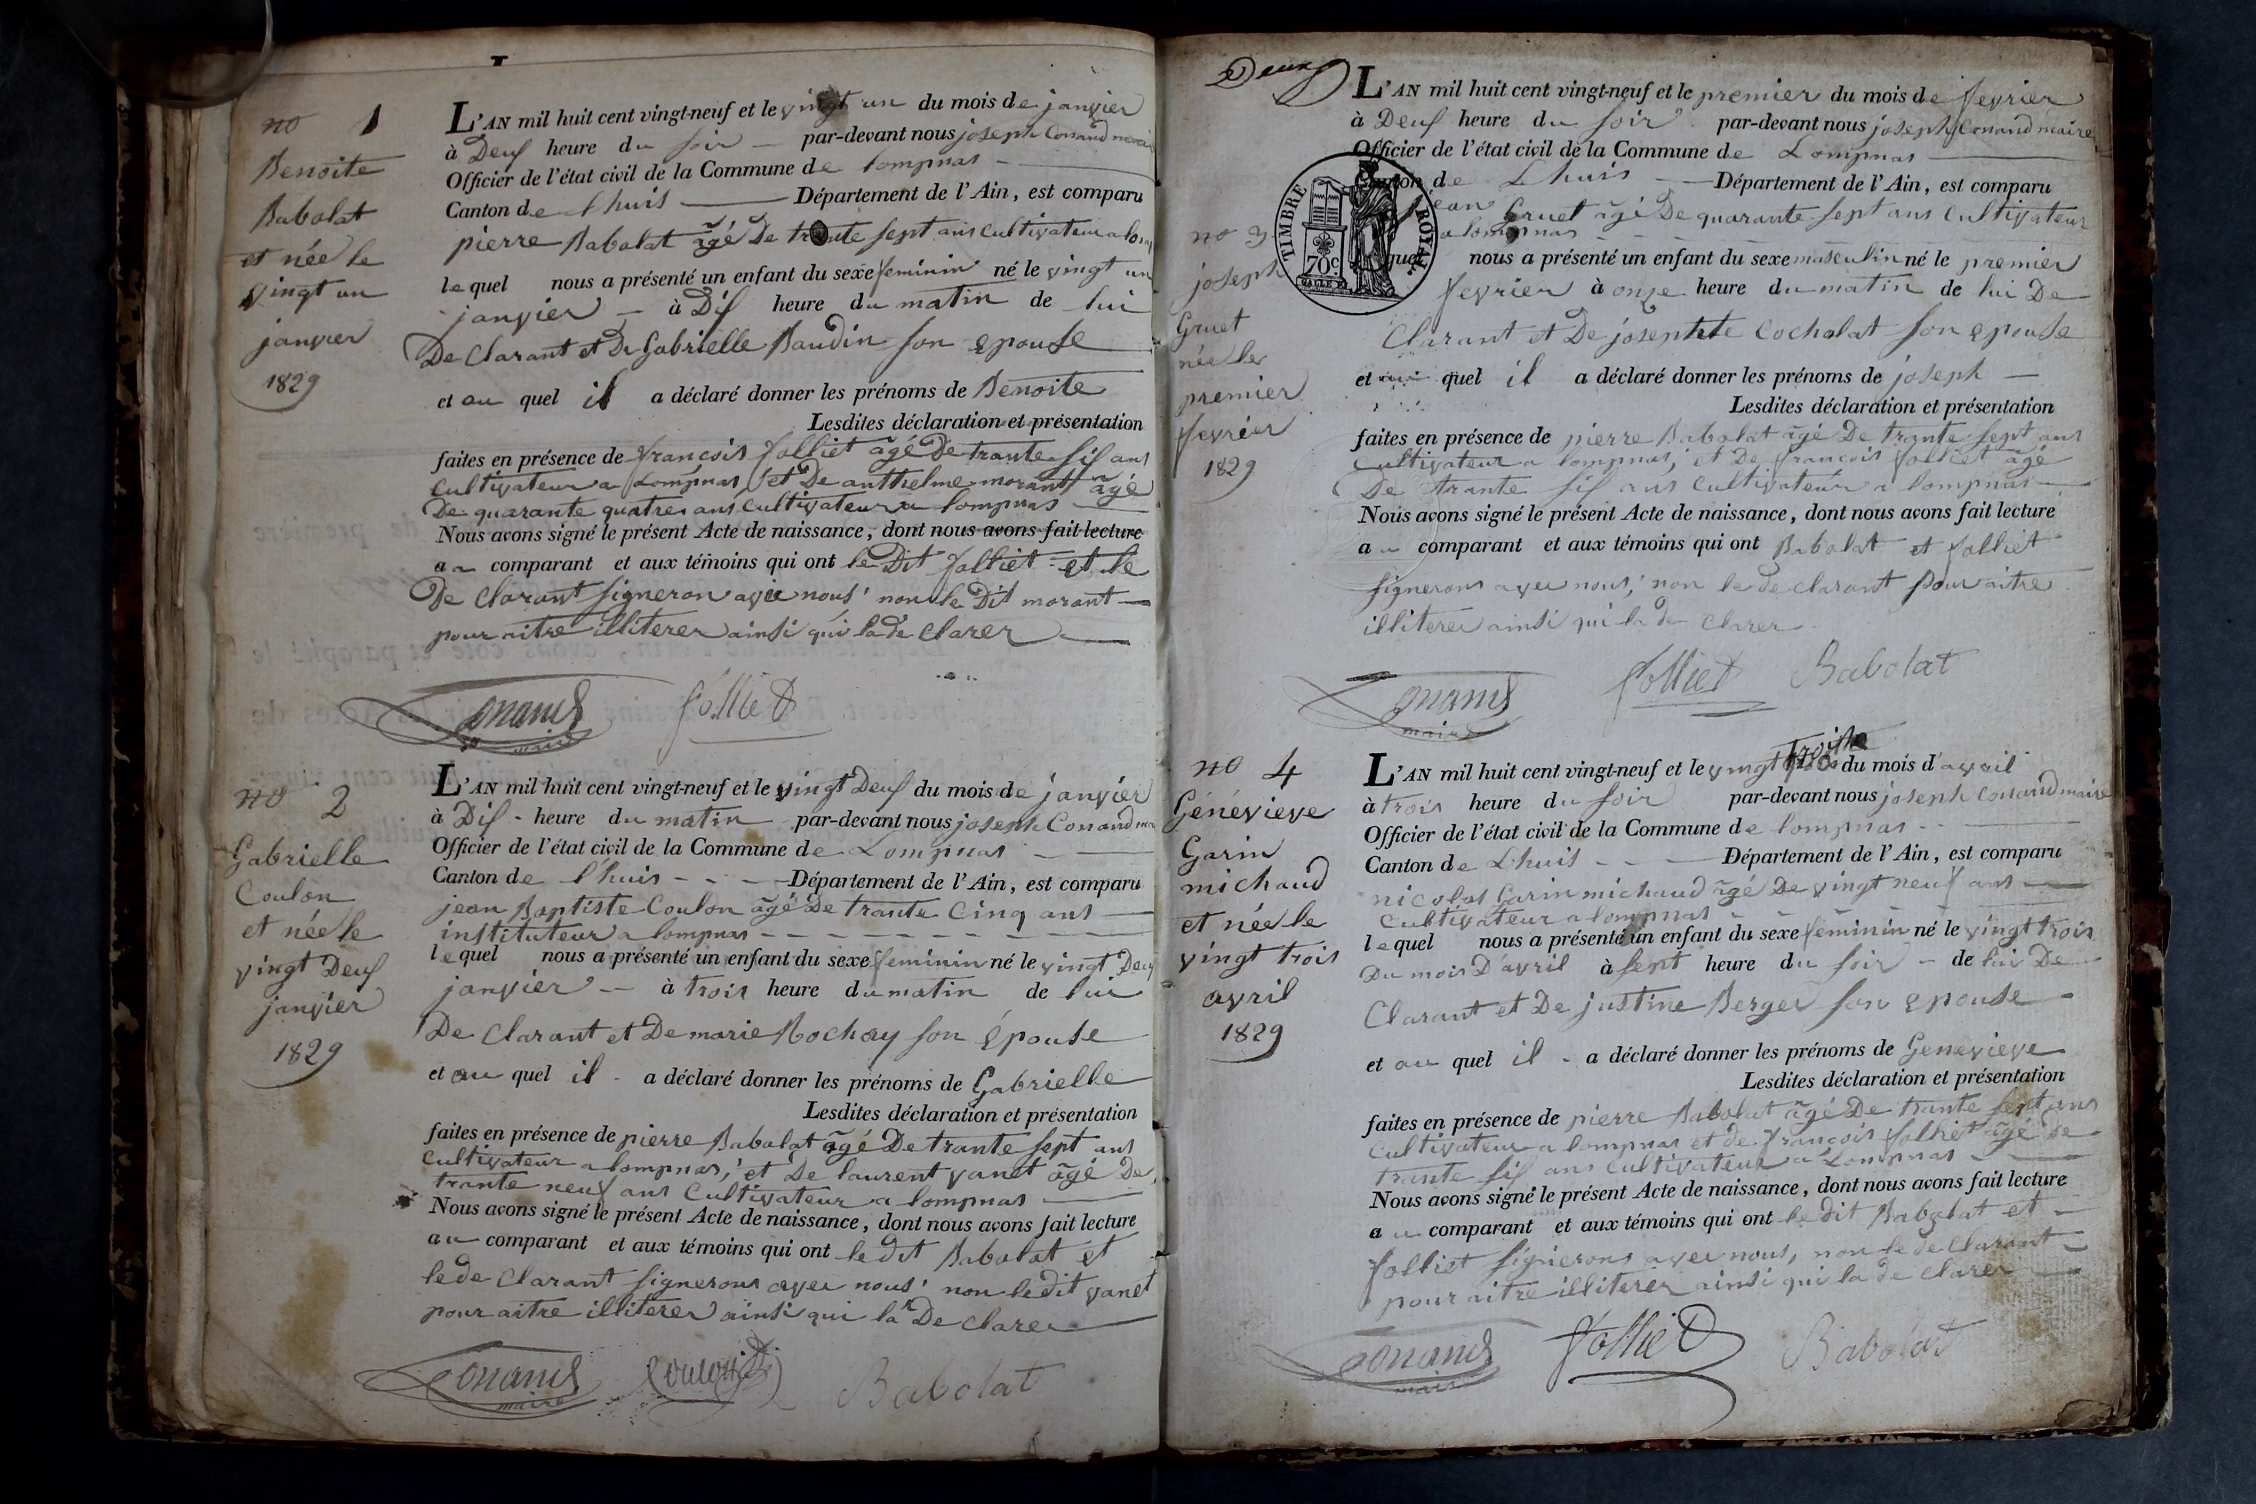 1
no 1
Benoite
Babolat
et née le
vingt un
janvier
1829
L'AN mil huit cent vingt-neuf et le vingt un du mois de janvier
à Deuf heure du soir par-devant nous joseph Conand maire
Officier de l'état civil de la Commune de lompnas
Canton de l'huis Département de l'Ain, est comparu
pierre Babolat âgé De trante sept ans cultivateur a
lequel nous a présenté un enfant du sexe feminin né le vingt un
janvier à Dif heure du matin de lui
De clarant et De Gabrielle Baudin son epouse
et au quel il a déclaré donner les prénoms de Benoite
Lesdites déclaration et présentation
faites en présence de francois folliet âgé De trante sif ans
cultivateur a Lompnas, et De anthelme morant âgé
De quarante quatre ans cultivateur a lompnas
Nous avons signé le présent Acte de naissance, dont nous avons fait lecture
au comparant et aux témoins qui ont le Dit folliet et le
De clarant signeron avec nous' non le Dit morant
pour aitre illiterer ainsi qui la de clarer
Conand folliet
maire
no 2
Gabrielle
Coulon
et née le
vingt Deuf
janvier
1829
L'AN mil huit cent vingt-neuf et le vingt Deuf du mois de janvier
à Dif heure du matin par-devant nous joseph Conand
Officier de l'état civil de la Commune de Lompnas
Canton de l'huis Département de l'Ain, est comparu
jean Baptiste Coulon âgé de trante Cinq ans
instituteur a lompnas
lequel nous a présenté un enfant du sexe feminin né le vingt Deuf
janvier à trois heure du matin de lui
De clarant et De marie Rochay son épouse
et au quel il a déclaré donner les prénoms de Gabrielle
Lesdites déclaration et présentation
faites en présence de pierre Babolat âgé De trante sept ans
cultivateur a lompnas, et De laurent vanet âgé De
trante neuf ans Cultivateur a lompnas
Nous avons signé le présent Acte de naissance, dont nous avons fait lecture
au comparant et aux témoins qui ont le dit Babolat et
le de clarant signerons avec nous' non le dit vanet
pour aitre illiterer ainsi qui la De clarer
Conand Coulon Babolat
maire
Deux
no 3
joseph
Gruet
née le
premier
fevrier
1829
TIMBRE ROYAL
70c
L'AN mil huit cent vingt-neuf et le premier du mois de fevrier
à Deuf heure du soir par-devant nous joseph Conand maire
Officier de l'état civil de la Commune de Lompnas
Canton de L'huis Département de l'Ain, est comparu
jean Gruet âgé De quarante sept ans Cultivateur
a lompnas
quel nous a présenté un enfant du sexe masculin né le premier
fevrier à onze heure du matin de lui De
Clarant et De josephte Cochalat son epouse
et quel il a déclaré donner les prénoms de joseph
Lesdites déclaration et présentation
faites en présence de pierre Babolat âgé De trante sept ans
cultivateur a lompnas, et De francois folliet âgé
De trante sif ans cultivateur a lompnas
Nous avons signé le présent Acte de naissance, dont nous avons fait lecture
au comparant et aux témoins qui ont Babolat et folliet
signerons avec nous, non le de clarant pour aitre
illiterer ainsi qui la de clarer
Conand folliet Babolat
maire
no 4
Génévieve
Garin
michaud
et née le
vingt trois
avril
1829
L'AN mil huit cent vingt-neuf et le vingt trois du mois d'avril
à trois heure du soir par-devant nous joseph Conand maire
Officier de l'état civil de la Commune de lompnas
Canton de L'huis Département de l'Ain, est comparu
nicolas Garin michaud âgé De vingt neuf ans
cultivateur a lompnas
lequel nous a présenté un enfant du sexe feminin né le vingt trois
Du mois D'avril à sept heure du soir de lui De
Clarant et De justine Berger son epouse
et au quel il a déclaré donner les prénoms de Genevieve
Lesdites déclaration et présentation
faites en présence de pierre Babolat âgé De trante sept ans
cultivateur a lompnas et de francois folliet âgé De
trante sif ans cultivateur a Lompnas
Nous avons signé le présent Acte de naissance, dont nous avons fait lecture
au comparant et aux témoins qui ont le dit Babolat et
folliet signerons avec nous, non le de clarant
pour aitre illiterer ainsi qui la de clarer
Conand folliet Babolat
maire